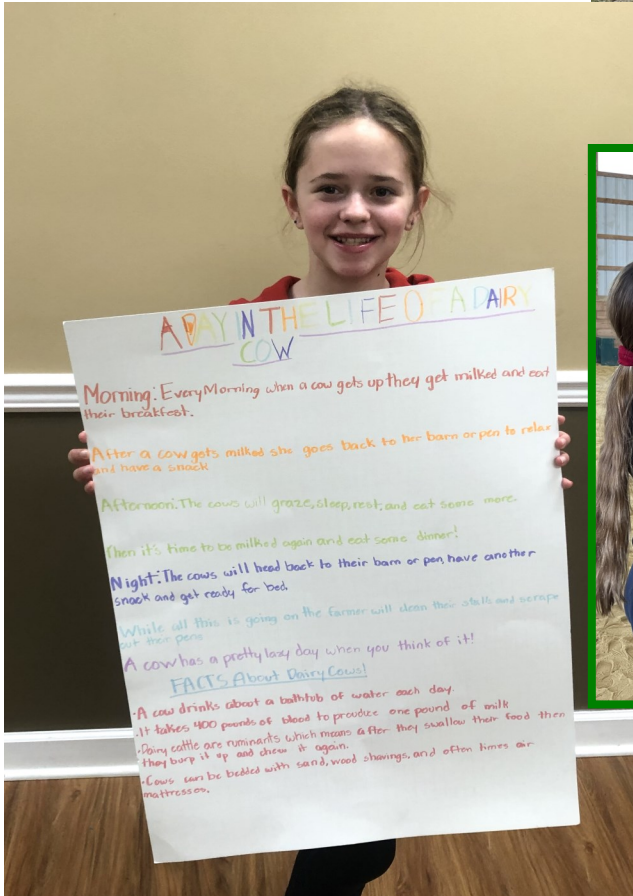 A DAY IN THE LIFE OF A DAIRY
COW
Morning: Every Morning when a cow gets up they get milked and eat
their breakfest.
After a cow gets milked she goes back to her barn or pen to relax
and have a snack
Afternoon: The cows will graze, sleep, rest, and eat some more.
Then it's time to be milked again and eat some dinner!
Night: The cows will head back to their barn or pen, have another
snack and get ready for bed.
While all this is going on the farmer will clean their stalls and scrape
out their pens
A cow has a pretty lazy day when you think of it!
FACTS About Dairy Cows!
•A cow drinks about a bathtub of water each day.
•It takes 400 pounds of blood to proudce one pound of milk
•Dairy cattle are ruminants which means after they swallow their food then
they burp it up and chew it again.
•Cows can be bedded with sand, wood shavings, and often times air
mattresses.